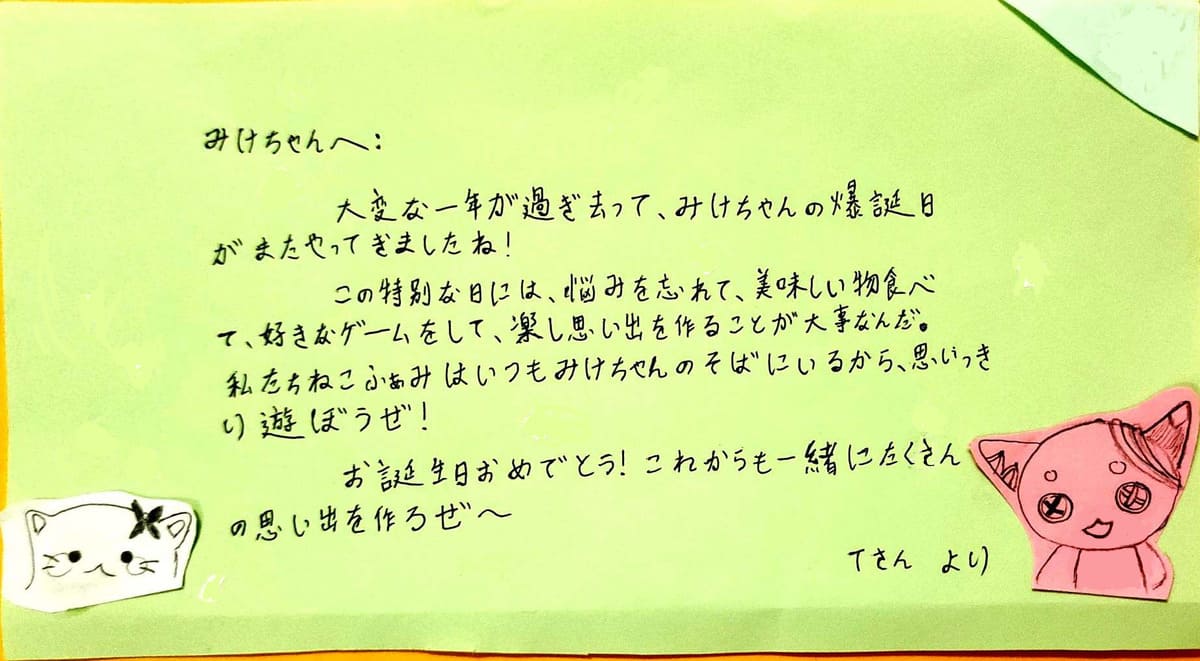 みけちゃんへ:
大変な一年が過ぎ去って、みけちゃんの爆誕日
がまたやってきましたね!
この特別な日には、悩みを忘れて、美味しい物食べ
て、好きなゲームをして、楽し思い出を作ることが大事なんだ。
私たちねこふぁみはいつもみけちゃんのそばにいるから、思いっき
り遊ぼうぜ!
お誕生日おめでとう!これからも一緒にたくさん
の思い出を作ろぜ〜
Tさん より